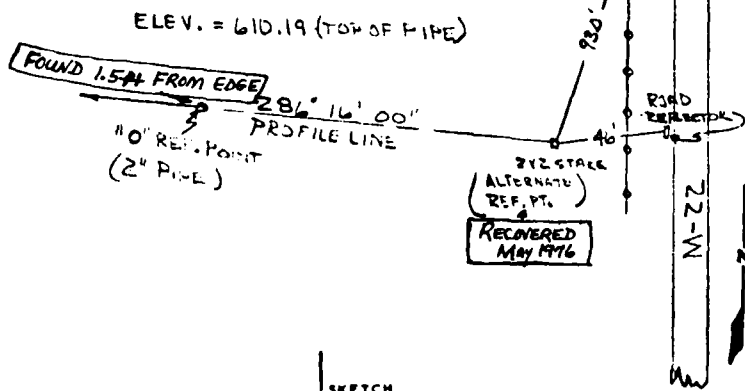 ELEV. = 610.19 (TOP OF PIPE)
930'
FOUND 1.5 ft FROM EDGE
286° 16' 00"
PROFILE LINE
"0" REF. POINT
(2" PIPE)
46'
ROAD
REFLECTOR
2X2 STAKE
(ALTERNATE
REF. PT.)
RECOVERED
May 1976
22-W
SKETCH